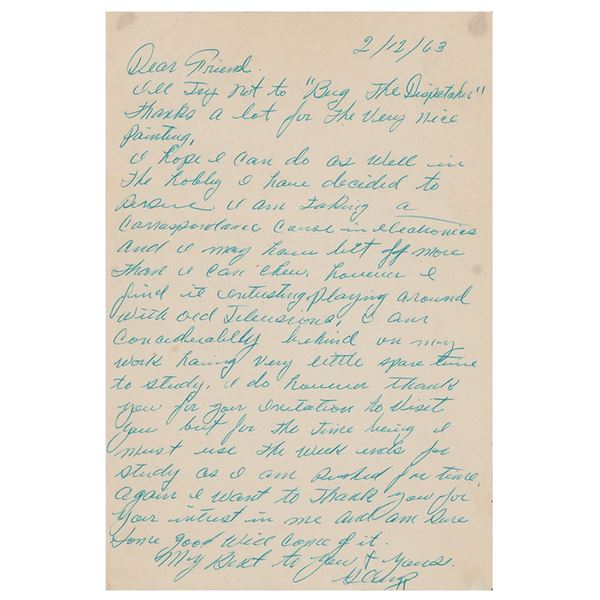 2/12/63
Dear Friend.
I'll Try Not to "Bug The Dispatcher"
Thanks a lot for The Very Nice
Painting,
I hope I can do as well in
The hobby I have decided to
Persue. I am taking a
Correspondance Course in electronics
And I may have bit off more
Than I can chew, however I
find it intresting playing around
With old Televisions, I am
Conciderablly behind on my
work having Very little spare time
to study, I do however thank
you for your invitation to Visit
You but for the Time being I
must use the week ends for
study as I am pushed for time.
again I want to Thank you for
Your intrest in me and am Sure
Some good will come of it.
My Best to You & Yours.